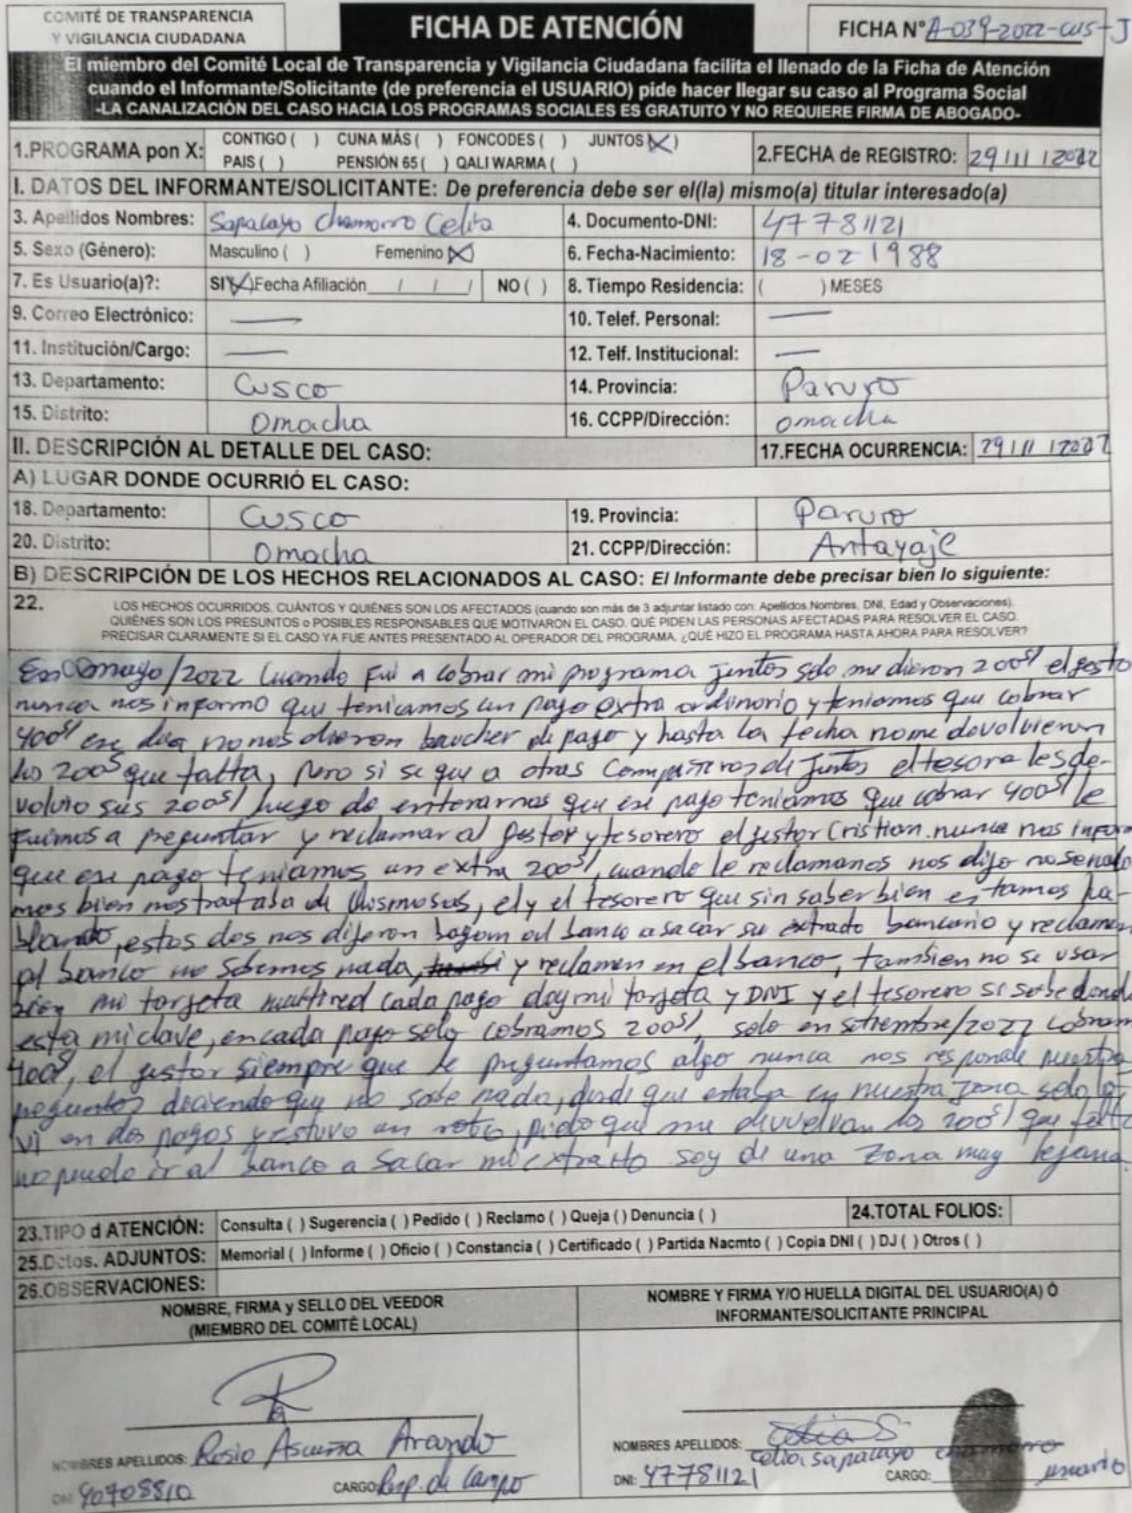 COMITÉ DE TRANSPARENCIA
Y VIGILANCIA CIUDADANA
FICHA DE ATENCIÓN
FICHA N° A-039-2022-CUS-J
El miembro del Comité Local de Transparencia y Vigilancia Ciudadana facilita el llenado de la Ficha de Atención
cuando el Informante/Solicitante (de preferencia el USUARIO) pide hacer llegar su caso al Programa Social
-LA CANALIZACIÓN DEL CASO HACIA LOS PROGRAMAS SOCIALES ES GRATUITO Y NO REQUIERE FIRMA DE ABOGADO-
1.PROGRAMA pon X: CONTIGO ( ) CUNA MÁS ( ) FONCODES ( ) JUNTOS (X)
PAIS ( ) PENSIÓN 65 ( ) QALI WARMA ( )
2.FECHA de REGISTRO: 29/11/2022
I. DATOS DEL INFORMANTE/SOLICITANTE: De preferencia debe ser el(la) mismo(a) titular interesado(a)
3. Apellidos Nombres: Sapacayo Chamorro Celia
4. Documento-DNI: 47781121
5. Sexo (Género): Masculino ( ) Femenino (X)
6. Fecha-Nacimiento: 18-02 1988
7. Es Usuario(a)?: SI (X) Fecha Afiliación / / / NO ( )
8. Tiempo Residencia: ( ) MESES
9. Correo Electrónico: —
10. Telef. Personal: —
11. Institución/Cargo: —
12. Telf. Institucional: —
13. Departamento: Cusco
14. Provincia: Paruro
15. Distrito: Omacha
16. CCPP/Dirección: omacha
II. DESCRIPCIÓN AL DETALLE DEL CASO:
17.FECHA OCURRENCIA: 29/11/2022
A) LUGAR DONDE OCURRIÓ EL CASO:
18. Departamento: Cusco
19. Provincia: Paruro
20. Distrito: Omacha
21. CCPP/Dirección: Antayaje
B) DESCRIPCIÓN DE LOS HECHOS RELACIONADOS AL CASO: El Informante debe precisar bien lo siguiente:
22. LOS HECHOS OCURRIDOS. CUÁNTOS Y QUIÉNES SON LOS AFECTADOS (cuando son más de 3 adjuntar listado con: Apellidos,Nombres, DNI, Edad y Observaciones).
QUIÉNES SON LOS PRESUNTOS o POSIBLES RESPONSABLES QUE MOTIVARON EL CASO. QUÉ PIDEN LAS PERSONAS AFECTADAS PARA RESOLVER EL CASO.
PRECISAR CLARAMENTE SI EL CASO YA FUE ANTES PRESENTADO AL OPERADOR DEL PROGRAMA. ¿QUÉ HIZO EL PROGRAMA HASTA AHORA PARA RESOLVER?
mayo/2022 cuando fui a cobrar mi programa juntos solo me dieron 200s/ el gesto
nunca nos informo que teniamos un pago extra ordinario y teniamos que cobrar
400s/ ese dia no nos dieron baucher de pago y hasta la fecha no me devolvieron
los 200s que falta, pero si se que a otras compañeras de juntos el tesore les de-
volvio sus 200s/ luego de enterarnos que ese pago teniamos que cobrar 400s/ le
fuimos a preguntar y reclamar al gestor y tesorero el gestor Cristian nunca nos inform
que ese pago teniamos un extra 200s/, cuando le reclamanos nos dijo no
mos bien nos trataba de chismosas, el y el tesorero que sin saber bien estamos ha-
blando, estos dos nos dijeron bagam al banco a sacar su extrado bancario y reclamen
al banco no sabemos nada, y reclamen en el banco, tambien no se usar
bien mi tarjeta multired cada pago doy mi tarjeta y DNI y el tesorero si sabe donde
esta mi clave, en cada pago solo cobramos 200s/, solo en setiembre/2022 cobram
400s/, el gestor siempre que le preguntamos algo nunca nos responde nuestra
preguntas diciendo que no sabe nada, desde que estaba en nuestra zona solo lo
vi en dos pagos y estuvo un rato, pido que me devuelvan los 200s/ que falta
no puedo ir al banco a sacar mi extracto soy de una zona muy lejana.
23.TIPO d ATENCIÓN: Consulta ( ) Sugerencia ( ) Pedido ( ) Reclamo ( ) Queja ( ) Denuncia ( )
24.TOTAL FOLIOS:
25.Dctos. ADJUNTOS: Memorial ( ) Informe ( ) Oficio ( ) Constancia ( ) Certificado ( ) Partida Nacmto ( ) Copia DNI ( ) DJ ( ) Otros ( )
26.OBSERVACIONES:
NOMBRE, FIRMA y SELLO DEL VEEDOR
(MIEMBRO DEL COMITÉ LOCAL)
NOMBRES APELLIDOS: Rosio Ascuña Arando
DNI: 40708810 CARGO: Resp. de Campo
NOMBRE Y FIRMA Y/O HUELLA DIGITAL DEL USUARIO(A) Ó
INFORMANTE/SOLICITANTE PRINCIPAL
Celia S
NOMBRES APELLIDOS: Celia sapacayo chamorro
DNI: 47781121 CARGO: usuario